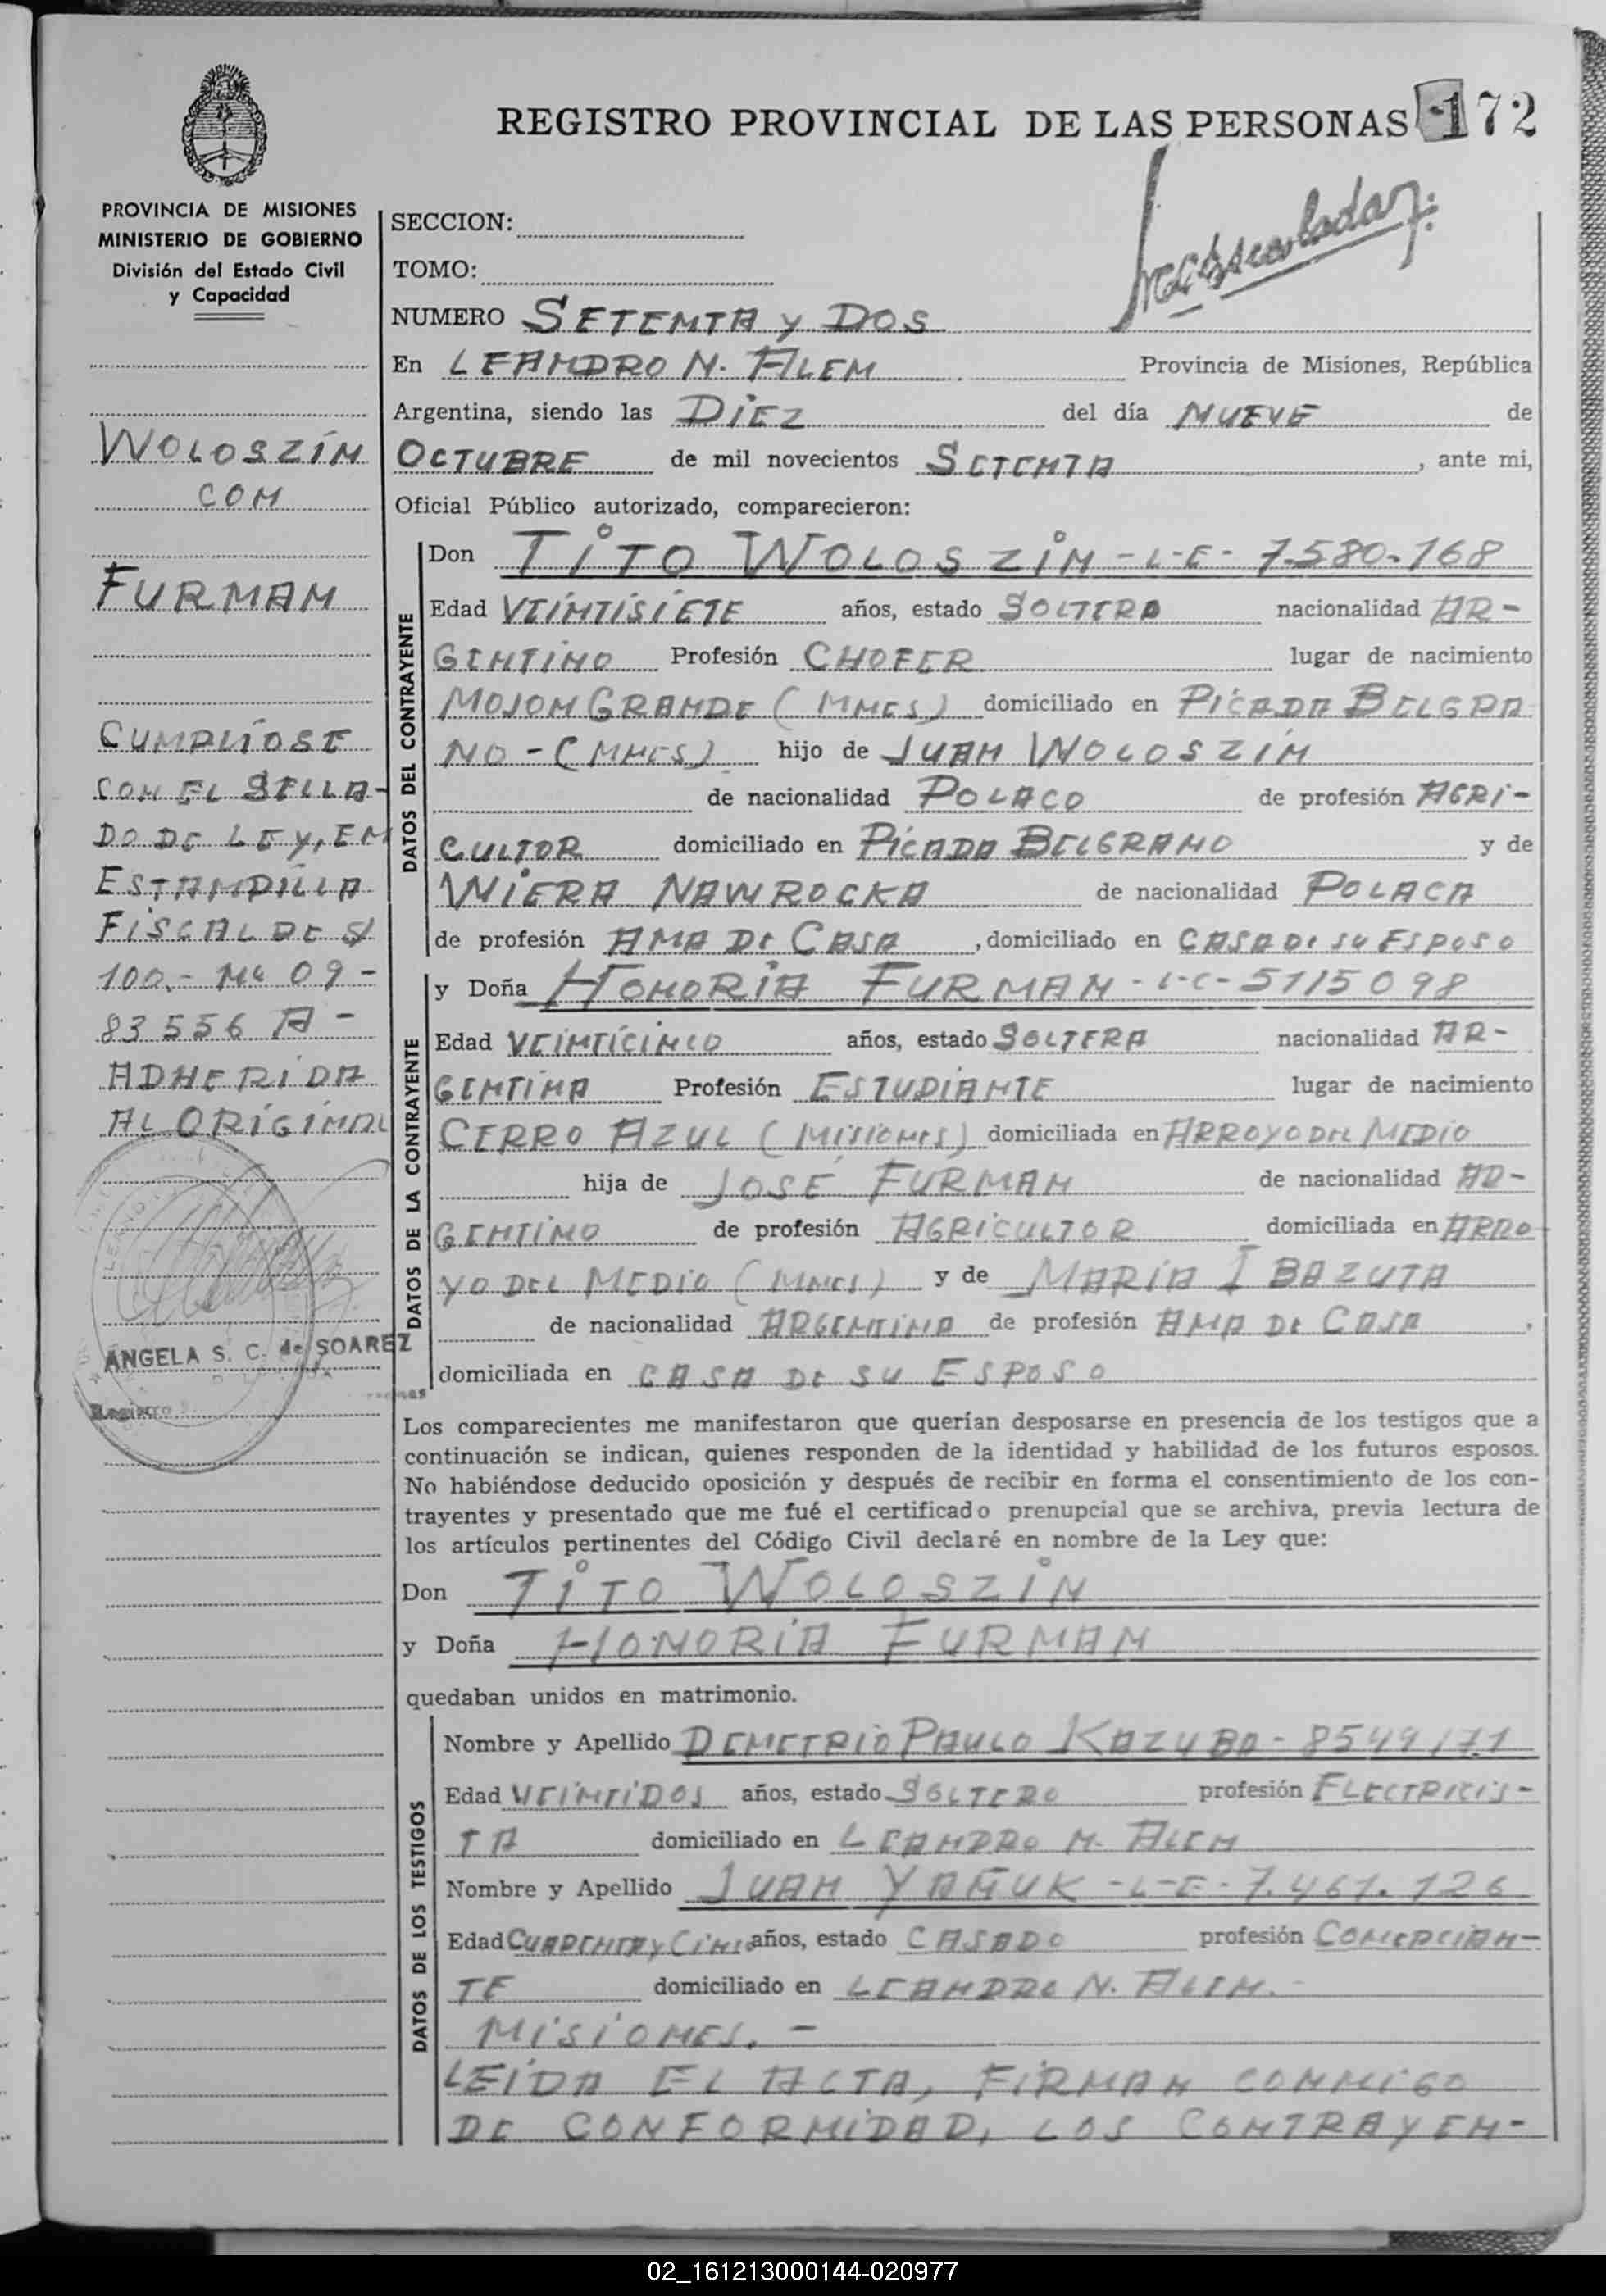 REGISTRO PROVINCIAL DE LAS PERSONAS
172
PROVINCIA DE MISIONES
MINISTERIO DE GOBIERNO
División del Estado Civil
y Capacidad
WOLOSZIN
CON
FURMAN
CUMPLIOSE
CON EL SELLA-
DO DE LEY, EN
ESTAMPILLA
FISCAL DE $/
100.- Nº 09-
83556 A-
ADHERIDA
AL ORIGINAL
ANGELA S. C. de SOAREZ
SECCION:
TOMO:
NUMERO SETENTA y DOS
En LEANDRO N. ALEM Provincia de Misiones, República
Argentina, siendo las DIEZ del día NUEVE de
OCTUBRE de mil novecientos SETENTA, ante mi,
Oficial Público autorizado, comparecieron:
DATOS DEL CONTRAYENTE
Don TITO WOLOSZIN - L-E- 7.580.168
Edad VEINTISIETE años, estado SOLTERO nacionalidad AR-
GENTINO Profesión CHOFER lugar de nacimiento
MOJON GRANDE (MNES) domiciliado en PICADA BELGRA
NO - (MNES) hijo de JUAN WOLOSZIN
de nacionalidad POLACO de profesión AGRI-
CULTOR domiciliado en PICADA BELGRANO y de
WIERA NAWROCKA de nacionalidad POLACA
de profesión AMA DE CASA, domiciliado en CASA DE SU ESPOSO
DATOS DE LA CONTRAYENTE
y Doña HONORIA FURMAN - L-C- 5115098
Edad VEINTICINCO años, estado SOLTERA nacionalidad AR-
GENTINA Profesión ESTUDIANTE lugar de nacimiento
CERRO AZUL (MISIONES) domiciliada en ARROYO DEL MEDIO
hija de JOSÉ FURMAN de nacionalidad AR-
GENTINO de profesión AGRICULTOR domiciliada en ARRO
YO DEL MEDIO (MNES) y de MARIA I BAZUTA
de nacionalidad ARGENTINA de profesión AMA DE CASA,
domiciliada en CASA DE SU ESPOSO
Los comparecientes me manifestaron que querían desposarse en presencia de los testigos que a
continuación se indican, quienes responden de la identidad y habilidad de los futuros esposos.
No habiéndose deducido oposición y después de recibir en forma el consentimiento de los con-
trayentes y presentado que me fué el certificado prenupcial que se archiva, previa lectura de
los artículos pertinentes del Código Civil declaré en nombre de la Ley que:
Don TITO WOLOSZIN
y Doña HONORIA FURMAN
quedaban unidos en matrimonio.
DATOS DE LOS TESTIGOS
Nombre y Apellido DEMETRIO PAULO KAZUBA - 8549171
Edad VEINTIDOS años, estado SOLTERO profesión ELECTRICIS-
TA domiciliado en LEANDRO N. ALEM
Nombre y Apellido JUAN YAÑUK - L-E- 7.461.126
Edad CUARENTA y CINCO años, estado CASADO profesión COMERCIAN-
TE domiciliado en LEANDRO N. ALEM.-
MISIONES.-
LEIDA EL ACTA, FIRMAN CONMIGO
DE CONFORMIDAD, LOS CONTRAYEN-
02_161213000144-020977